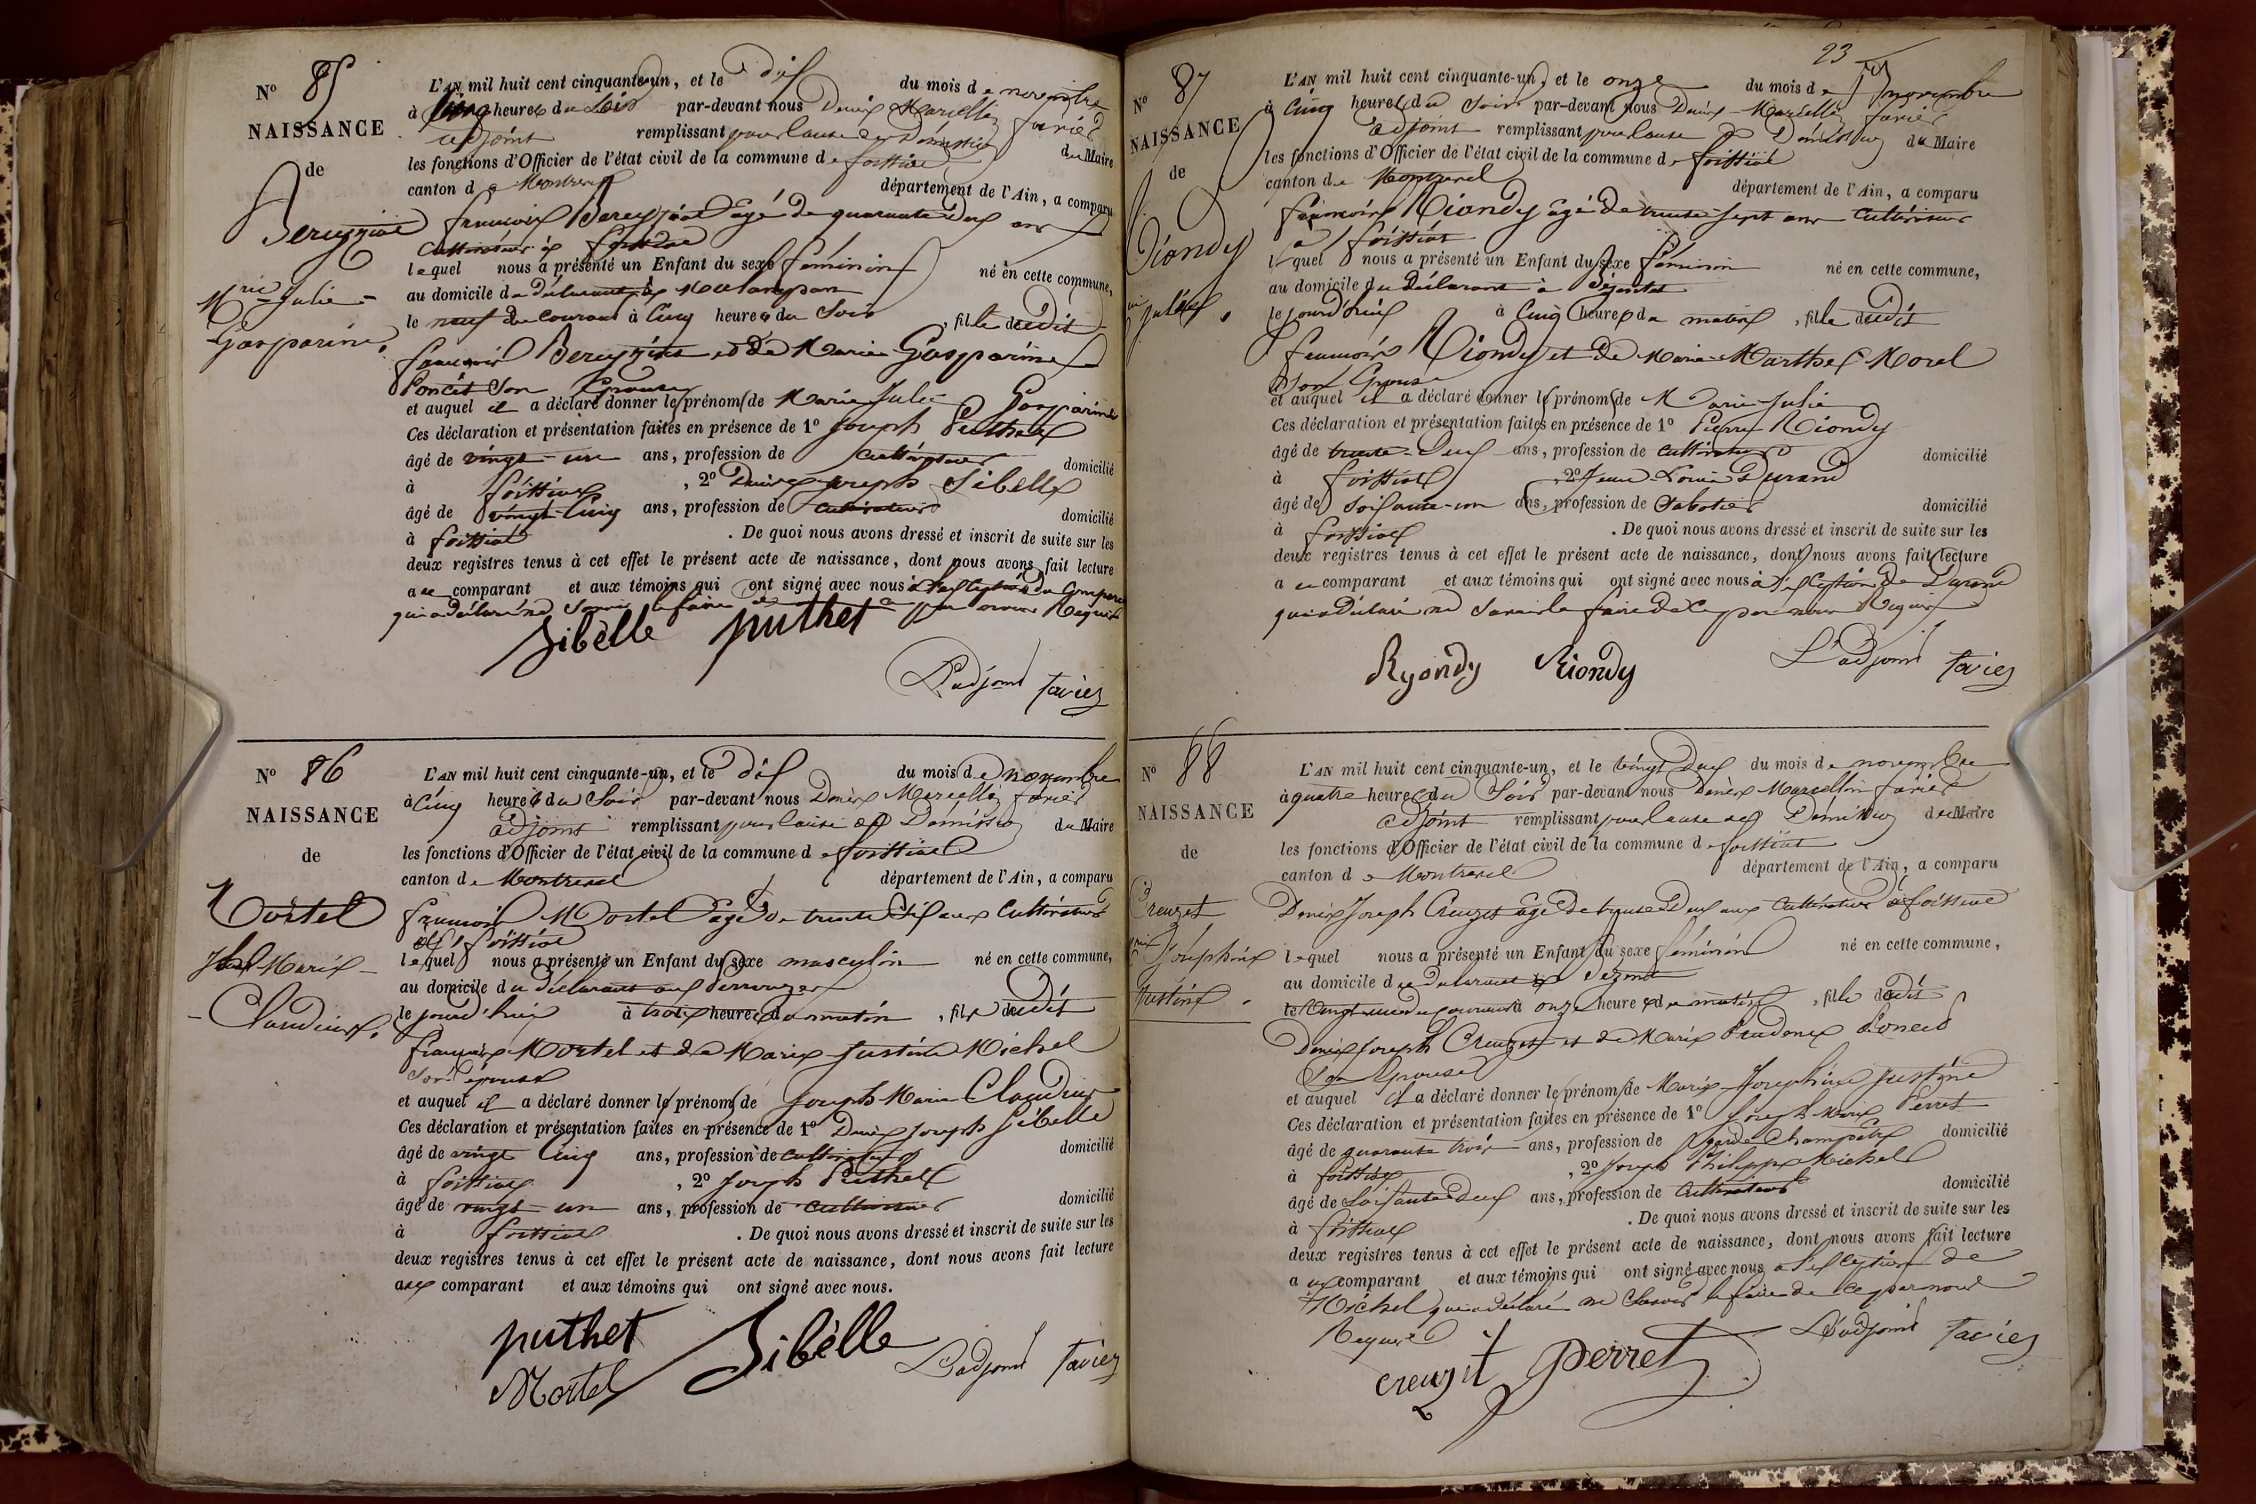 N° 85
NAISSANCE
de
Bereyziat
Mrie Julie
Gasparine
L'AN mil huit cent cinquante-un, et le dix du mois de novembre
à cinq heures du soir par-devant nous Denis Marcellin Favier
adjoint remplissant pour cause de Démission du Maire
les fonctions d'Officier de l'état civil de la commune de foissiat
canton de Montrevel département de l'Ain, a comparu
francois Bereyziat agé de quarante deux ans
Cultivateur à foissiat
lequel nous a présenté un Enfant du sexe féminin né en cette commune,
au domicile du déclarant à
le neuf du courant à Cinq heures du Soir, fille dudit
francois Bereyziat et de Marie Gasparine
Poncet Son Epouse
et auquel il a déclaré donner les prénoms de Marie Julie Gasparine
Ces déclaration et présentation faites en présence de 1° Joseph Puthet
âgé de vingt-un ans, profession de cultivateur domicilié
à foissiat, 2° Denis Joseph Sibelle
âgé de vingt-Cinq ans, profession de cultivateur domicilié
à foissiat. De quoi nous avons dressé et inscrit de suite sur les
deux registres tenus à cet effet le présent acte de naissance, dont nous avons fait lecture
au comparant et aux témoins qui ont signé avec nous à l'exception du Comparant
qui a déclaré ne Savoir le faire de ce par nous Requis
Sibèlle puthet
L'adjoint favier
N° 86
NAISSANCE
de
Mortel
Jph Marie
Claudius
L'AN mil huit cent cinquante-un, et le dix du mois de novembre
à Cinq heures du Soir par-devant nous Denis Marcellin favier
adjoint remplissant pour cause de Démission du Maire
les fonctions d'Officier de l'état civil de la commune de foissiat
canton de Montrevel département de l'Ain, a comparu
francois Mortel agé de trente Six ans Cultivateur
à foissiat
lequel nous a présenté un Enfant du sexe masculin né en cette commune,
au domicile du déclarant
le jourd'hui à trois heures du matin, fils dudit
francois Mortel et de Marie Justine Michel
Son épouse
et auquel il a déclaré donner les prénoms de Joseph Marie Claudius
Ces déclaration et présentation faites en présence de 1° Denis Joseph Sibelle
âgé de vingt Cinq ans, profession de cultivateur domicilié
à foissiat, 2° Joseph Puthet
âgé de vingt-un ans, profession de cultivateur domicilié
à foissiat. De quoi nous avons dressé et inscrit de suite sur les
deux registres tenus à cet effet le présent acte de naissance, dont nous avons fait lecture
aux comparant et aux témoins qui ont signé avec nous.
puthet Sibèlle
Mortel L'adjoint favier
23
N° 87
NAISSANCE
de
Riondy
Julie
L'AN mil huit cent cinquante-un, et le onze du mois de novembre
à Cinq heures du Soir par-devant nous Denis Marcellin favier
adjoint remplissant pour cause de Démission du Maire
les fonctions d'Officier de l'état civil de la commune de foissiat
canton de Montrevel département de l'Ain, a comparu
francois Riondy agé de trente-sept ans Cultivateur
à foissiat
lequel nous a présenté un Enfant du sexe féminin né en cette commune,
au domicile du déclarant à
le jourd'hui à Cinq heures du matin, fille dudit
francois Riondy et de Marie Marthe Morel
Son Epouse
et auquel il a déclaré donner les prénoms de Marie Julie
Ces déclaration et présentation faites en présence de 1° Pierre Riondy
âgé de trente-Deux ans, profession de Cultivateur domicilié
à foissiat, 2° Jean Louis Durand
âgé de soixante-un ans, profession de Sabotier domicilié
à foissiat. De quoi nous avons dressé et inscrit de suite sur les
deux registres tenus à cet effet le présent acte de naissance, dont nous avons fait lecture
au comparant et aux témoins qui ont signé avec nous à l'exception de Durand
qui a déclaré ne Savoir le faire de ce par nous Requis
Ryondy Riondy
L'adjoint favier
N° 88
NAISSANCE
de
Creuzet
Mrie Joséphine
Justine
L'AN mil huit cent cinquante-un, et le vingt Deux du mois de novembre
à quatre heures du Soir par-devant nous Denis Marcellin favier
adjoint remplissant pour cause de Démission du Maire
les fonctions d'Officier de l'état civil de la commune de foissiat
canton de Montrevel département de l'Ain, a comparu
Denis Joseph Creuzet agé de trente Deux ans Cultivateur à foissiat
lequel nous a présenté un Enfant du sexe féminin né en cette commune,
au domicile du déclarant
le vingt-un du courant à onze heures du matin, fille dudit
Denis Joseph Creuzet et de Marie Prudence Poncet
Son Epouse
et auquel il a déclaré donner les prénoms de Marie Joséphine Justine
Ces déclaration et présentation faites en présence de 1° Joseph Marie Perret
âgé de quarante trois ans, profession de garde Champêtre domicilié
à foissiat, 2° Joseph Philippe Michel
âgé de Soixante Deux ans, profession de Cultivateur domicilié
à foissiat. De quoi nous avons dressé et inscrit de suite sur les
deux registres tenus à cet effet le présent acte de naissance, dont nous avons fait lecture
aux comparant et aux témoins qui ont signé avec nous à l'exception de
Michel qui a déclaré ne Savoir le faire de ce par nous
Requis L'adjoint favier
creuzet perret